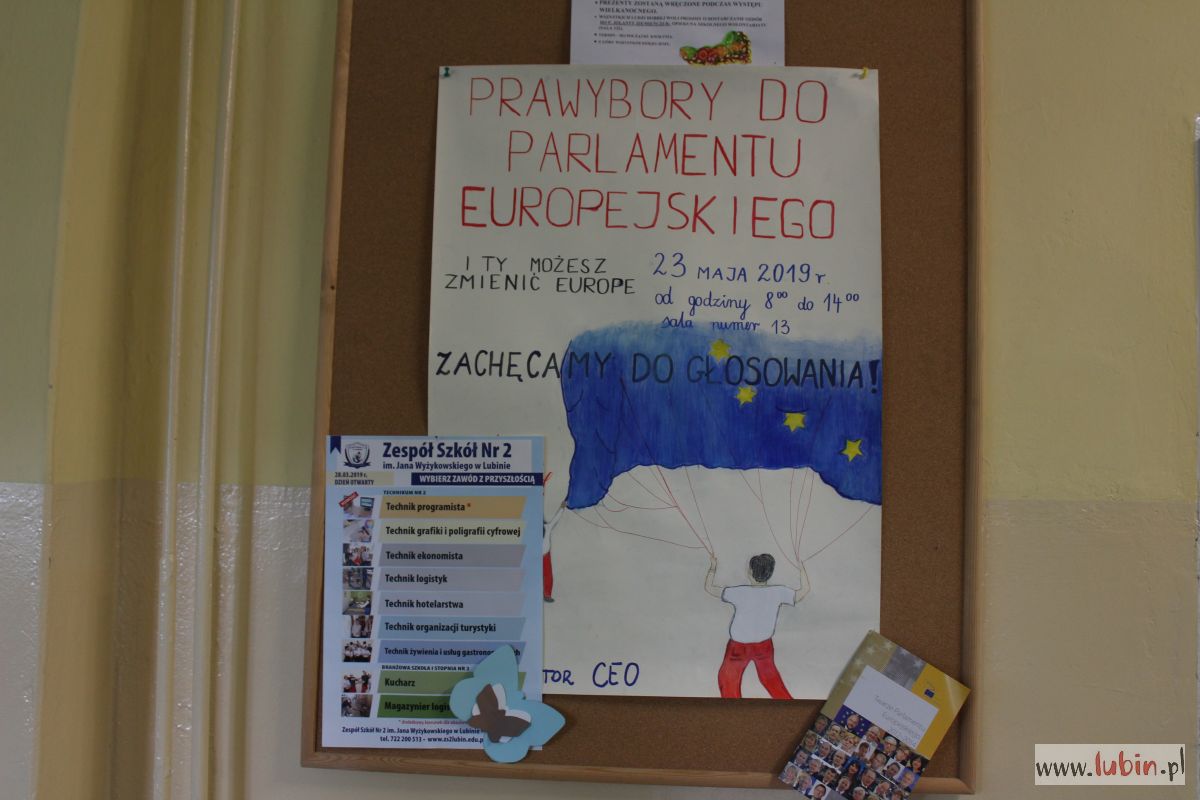 PREZENTY ZOSTANĄ WRĘCZONE PODCZAS WYSTĘPU
WIELKANOCNEGO.
PRAWYBORY DO
PARLAMENTU
EUROPEJSKIEGO
I TY MOŻESZ
ZMIENIĆ EUROPE
23 MAJA 2019 r.
od godziny 8⁰⁰ do 14⁰⁰
sala numer 13
ZACHĘCAMY DO GŁOSOWANIA!
TOR CEO
Zespół Szkół Nr 2
im. Jana Wyżykowskiego w Lubinie
28.03.2019 r.
DZIEŃ OTWARTY
WYBIERZ ZAWÓD Z PRZYSZŁOŚCIĄ
TECHNIKUM NR 2
Technik programista *
Technik grafiki i poligrafii cyfrowej
Technik ekonomista
Technik logistyk
Technik hotelarstwa
Technik organizacji turystyki
Technik żywienia i usług
BRANŻOWA SZKOŁA I STOPNIA NR 3
Kucharz
Magazynier
Zespół Szkół Nr 2 im. Jana Wyżykowskiego w Lubinie
tel. 722 200 513 - www.zs2lubin.edu.p
Twarze Parlamentu
Europejskiego
www.lubin.pl